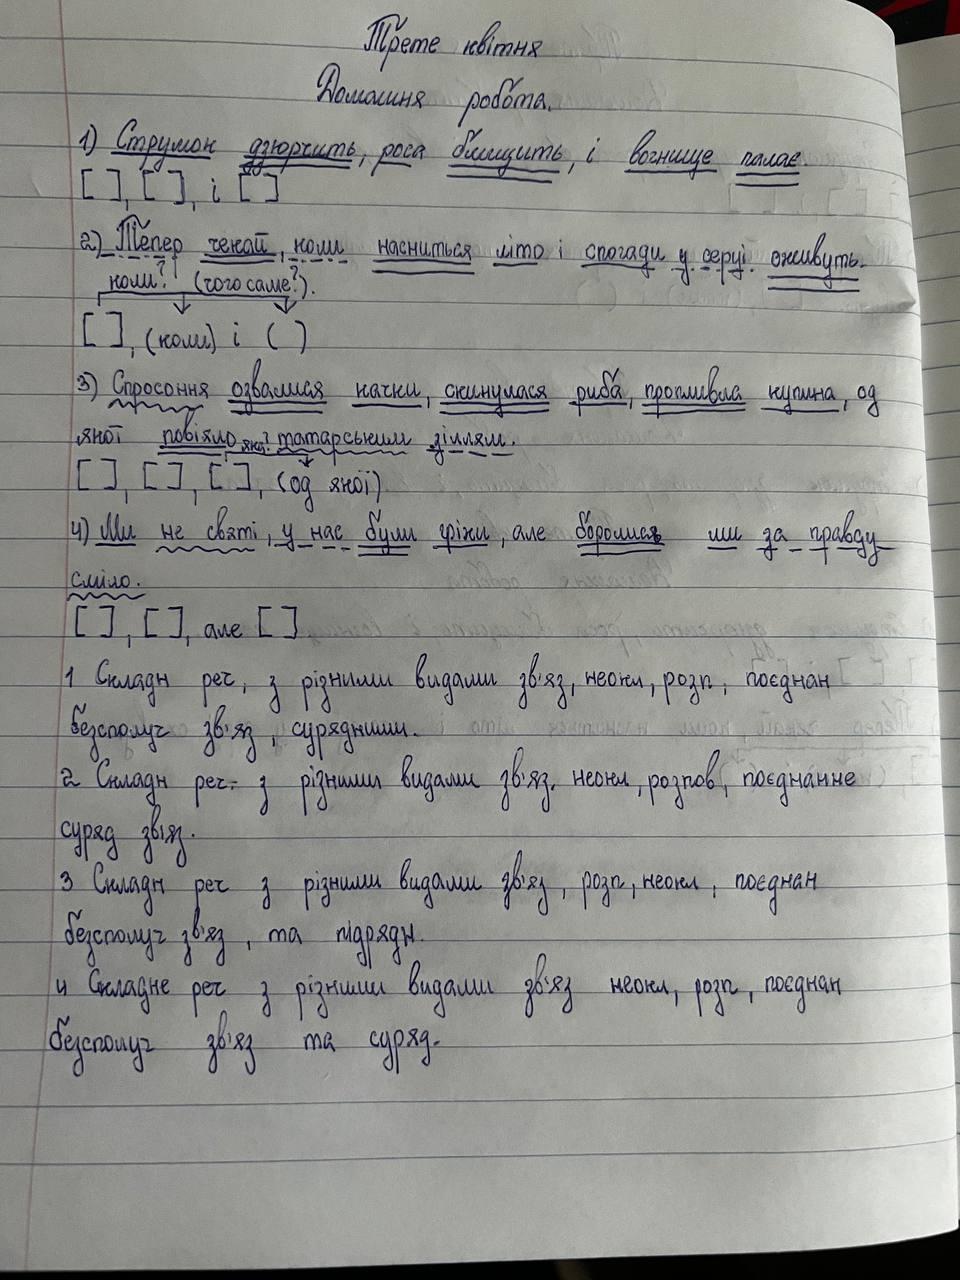 Третє квітня
Домашня робота.
1) Струмок дзюрчить, роса блищить, і вогнище палає.
[ ], [ ], і [ ]
2) Тепер чекай, коли насниться літо і спогади у серці оживуть.
коли? (чого саме?).
[ ], (коли) і ( )
3) Спросоння озвалися качки, скинулася риба, пропливла купина, од
якої повіяло яка? татарським зіллям.
[ ], [ ], [ ], (од якої)
4) Ми не святі, у нас були гріхи, але боролися ми за правду
сміло.
[ ], [ ], але [ ]
1 Складн реч, з різними видами зв'яз, неокл, розп, поєднан
безсполуч зв'яз, сурядними.
2 Складн реч- з різними видами зв'яз. неокл, розпов, поєднанне
суряд зв'яз.
3 Складн реч з різними видами зв'яз, розп, неокл, поєднан
безсполуч зв'яз, та підрядн.
4 Складне реч з різними видами зв'яз неокл, розп, поєднан
безсполуч зв'яз та суряд.